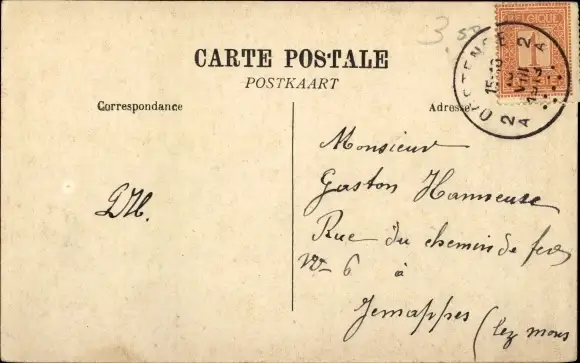 3.50
BELGIQUE
1
OOSTENDE 2 A
15-16
VIII
2 A
CARTE POSTALE
POSTKAART
Correspondance
Adresse
DH.
Monsieur
Gaston Hanneuse
Rue du chemin de fer
No 6 à
Jemappes (lez mons